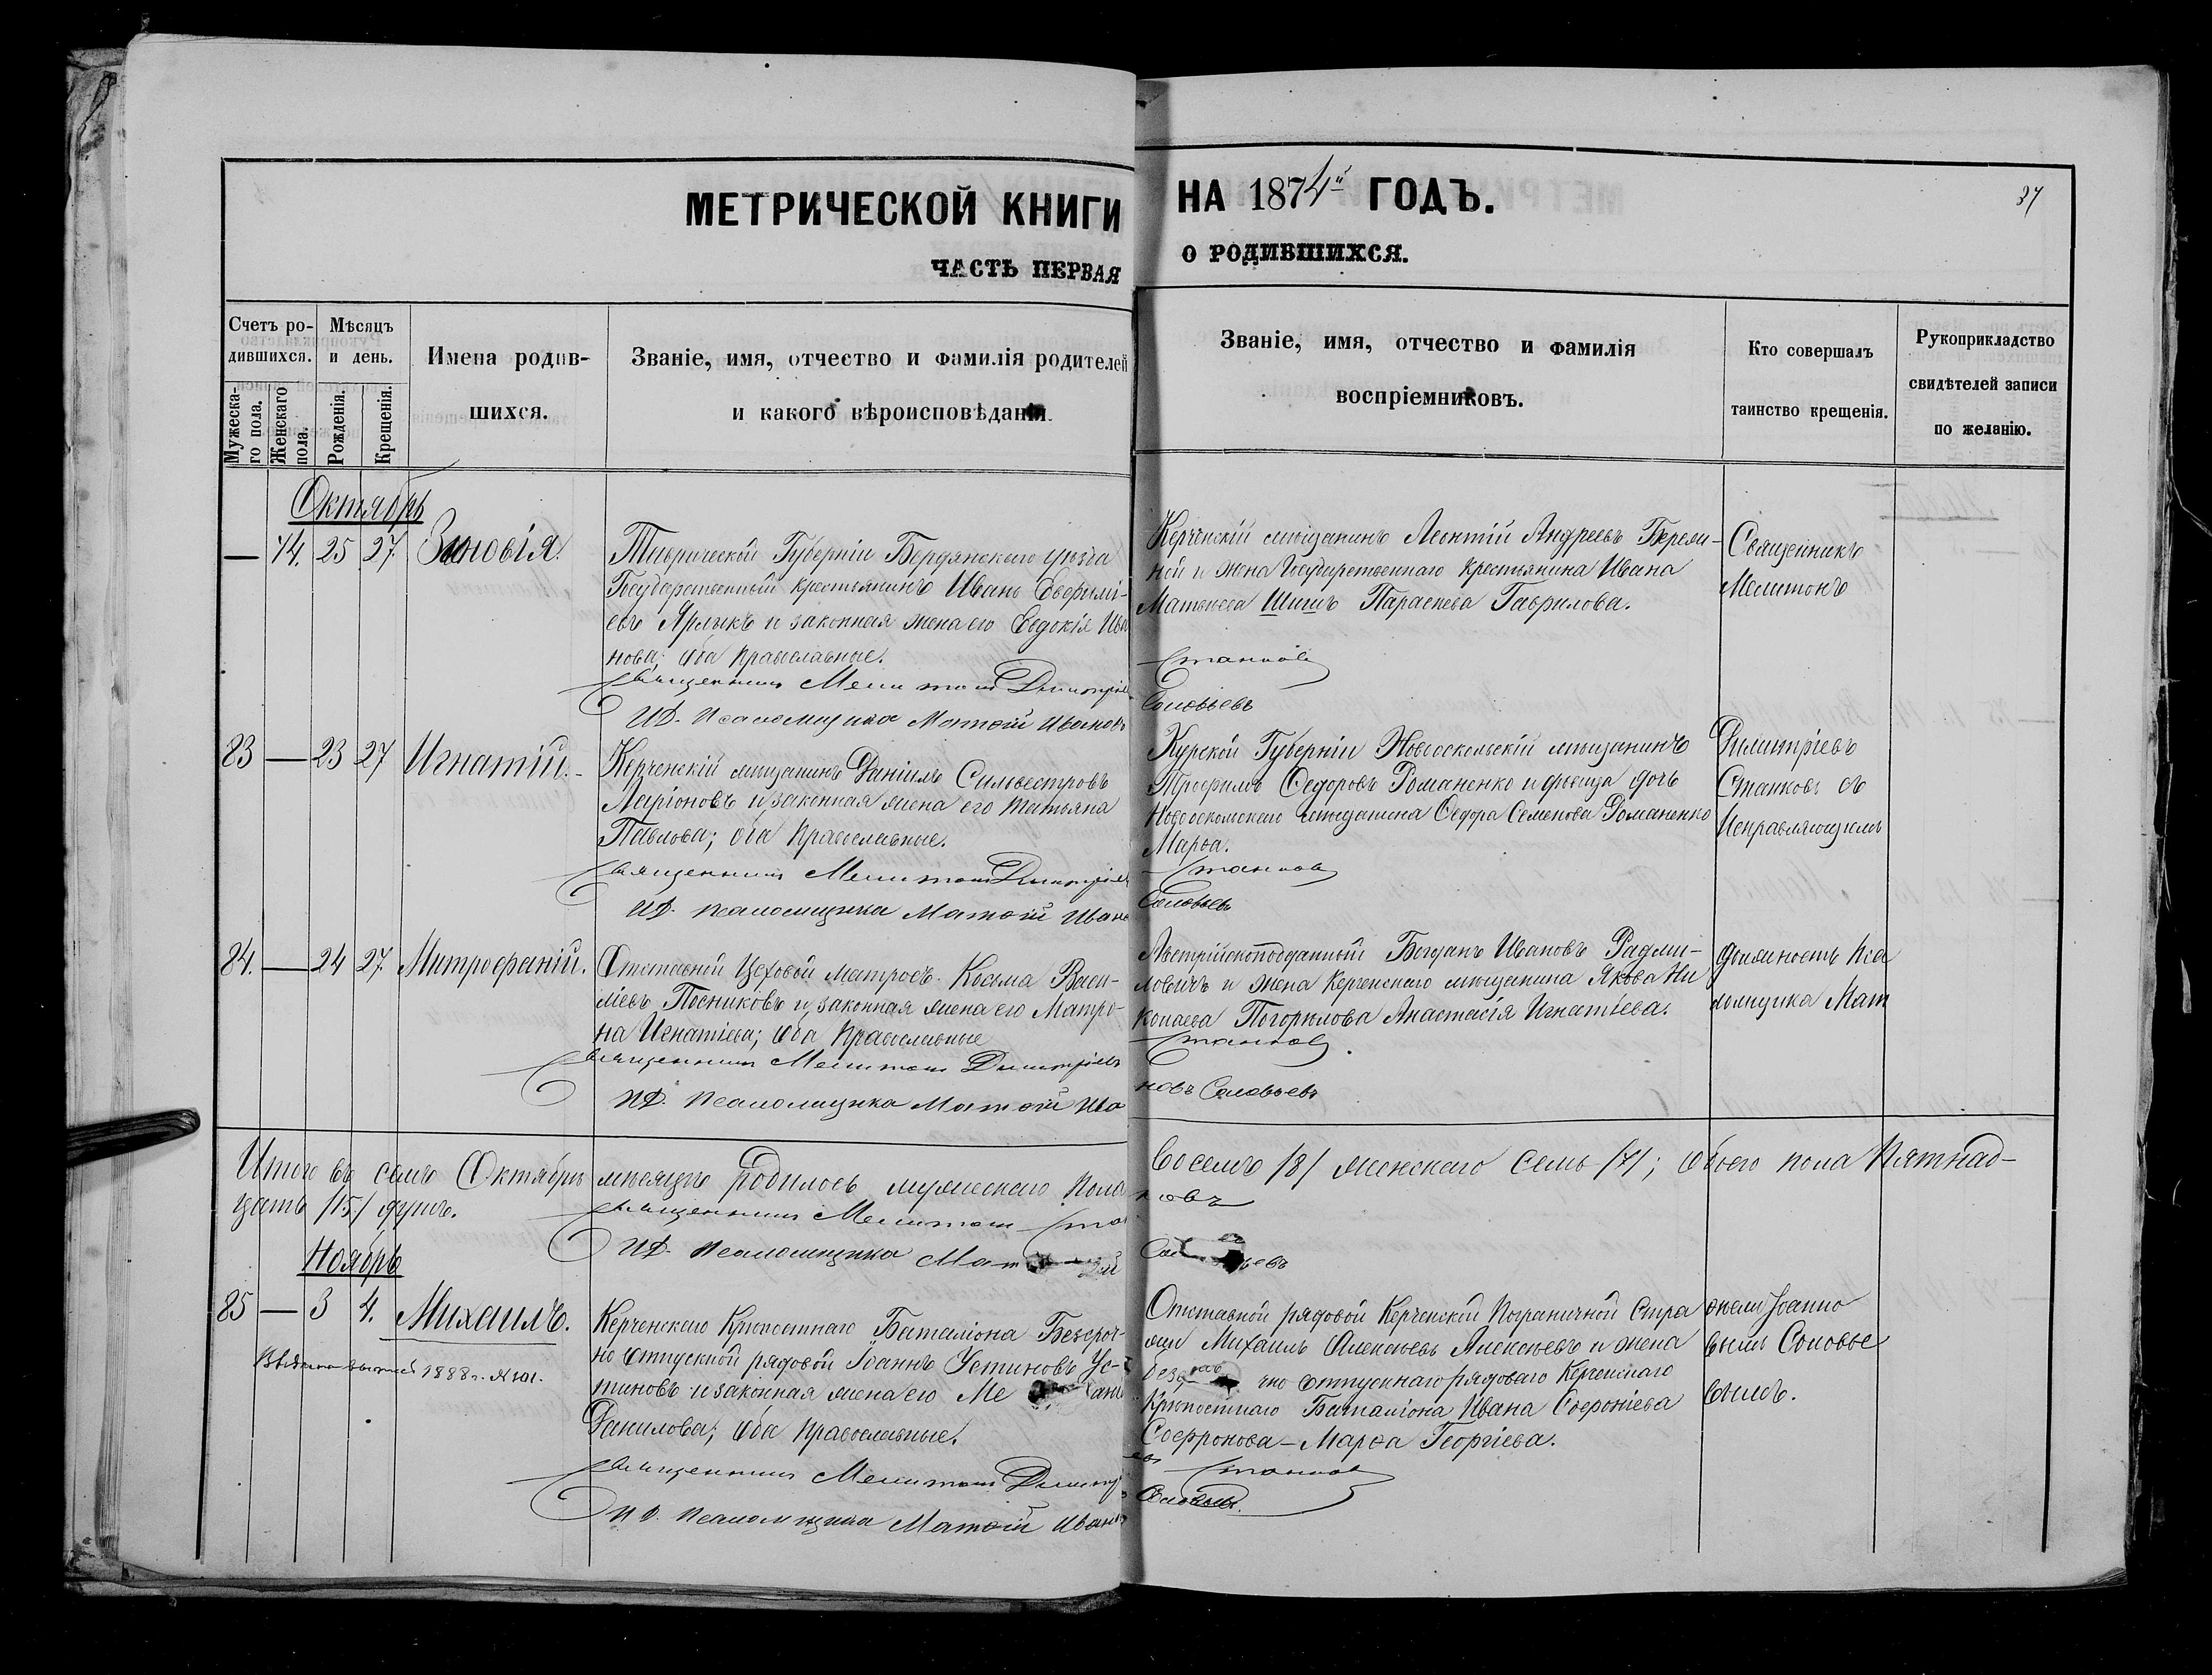 МЕТРИЧЕСКОЙ КНИГИ НА 1874й ГОДЪ.
87
ЧАСТЬ ПЕРВАЯ О РОДИВШИХСЯ.
Счетъ ро-
дившихся.
Мужеска-
го пола.
Женскаго
пола.
Мѣсяцъ
и день.
Рожденія.
Крещенія.
Имена родив-
шихся.
Званіе, имя, отчество и фамилія родителей
и какого вѣроисповѣданія.
Званіе, имя, отчество и фамилія
воспріемниковъ.
Кто совершалъ
таинство крещенія.
Рукоприкладство
свидѣтелей записи
по желанію.
Октябрь
— 74. 25 27. Зиновія.
Таврической Губерніи Бердянскаго уѣзда
Государственный крестьянинъ Иванъ Евфимі-
евъ Ярлыкъ и законная жена его Евдокія Ива
нова; оба православные.
Керченскій мѣщанинъ Леонтій Андреевъ
и жена Государственнаго крестьянина Ивана
Матвѣева Шишъ Параскева Гаврилова.
Священникъ
Мелитонъ
Священникъ Мелитонъ Димитріевъ Станковъ
И.Д. Псаломщика Матѳій Ивановъ Соловьевъ
83 — 23 27 Игнатій.
Керченскій мѣщанинъ Даніилъ Сильвестровъ
Ларіоновъ и законная жена его Татьяна
Павлова; оба православные.
Курской Губерніи Новооскольскій мѣщанинъ
Трофимъ Ѳедоровъ Романенко и дѣвица дочь
Новооскольскаго мѣщанина Ѳедора Семенова Романенко
Марѳа.
Димитріевъ
Станковъ съ
Исправляющимъ
Священникъ Мелитонъ Димитріевъ Станковъ
И.Д. Псаломщика Матѳій Ивановъ Соловьевъ
84. — 24 27. Митрофаній.
Отставной Цеховой матросъ Косьма Васи-
ліевъ Посниковъ и законная жена его Матро-
на Игнатіева; оба православные
Австрійскоподданный Богданъ Ивановъ Радми-
ловичъ и жена Керченскаго мѣщанина Якова Ни
колаева Погорѣлова Анастасія Игнатьева.
должность Пса
ломщика Мат
Священникъ Мелитонъ Димитріевъ Станковъ.
И.Д. Псаломщика Матѳій Ивановъ Соловьевъ
Итого въ семъ Октябрѣ мѣсяцѣ родилось мужескаго пола восемь /8/ женскаго семь /7/; обоего пола пятнад-
цать /15/ душъ.
Священникъ Мелитонъ Станковъ
И.Д. Псаломщика Матѳій Соловьевъ
Ноябрь
85 — 3 4. Михаилъ.
1888 г. № 101.
Керченскаго Крѣпостнаго Баталіона Безсроч-
но отпускной рядовой Іоаннъ Устиновъ Ус-
тиновъ и законная жена его
Данилова; оба православные.
Отставной рядовой Керченской Пограничной Стра
жи Михаилъ Алексѣевъ Алексѣевъ и жена
отпускнаго рядоваго Керченскаго
Крѣпостнаго Баталіона Ивана Софроніева
Софронова — Марѳа Георгіева.
ѳіемъ Іоанно
вымъ Соловье
вымъ.
Священникъ Мелитонъ Димитріевъ Станковъ
И.Д. Псаломщика Матѳій Ивановъ Соловьевъ.